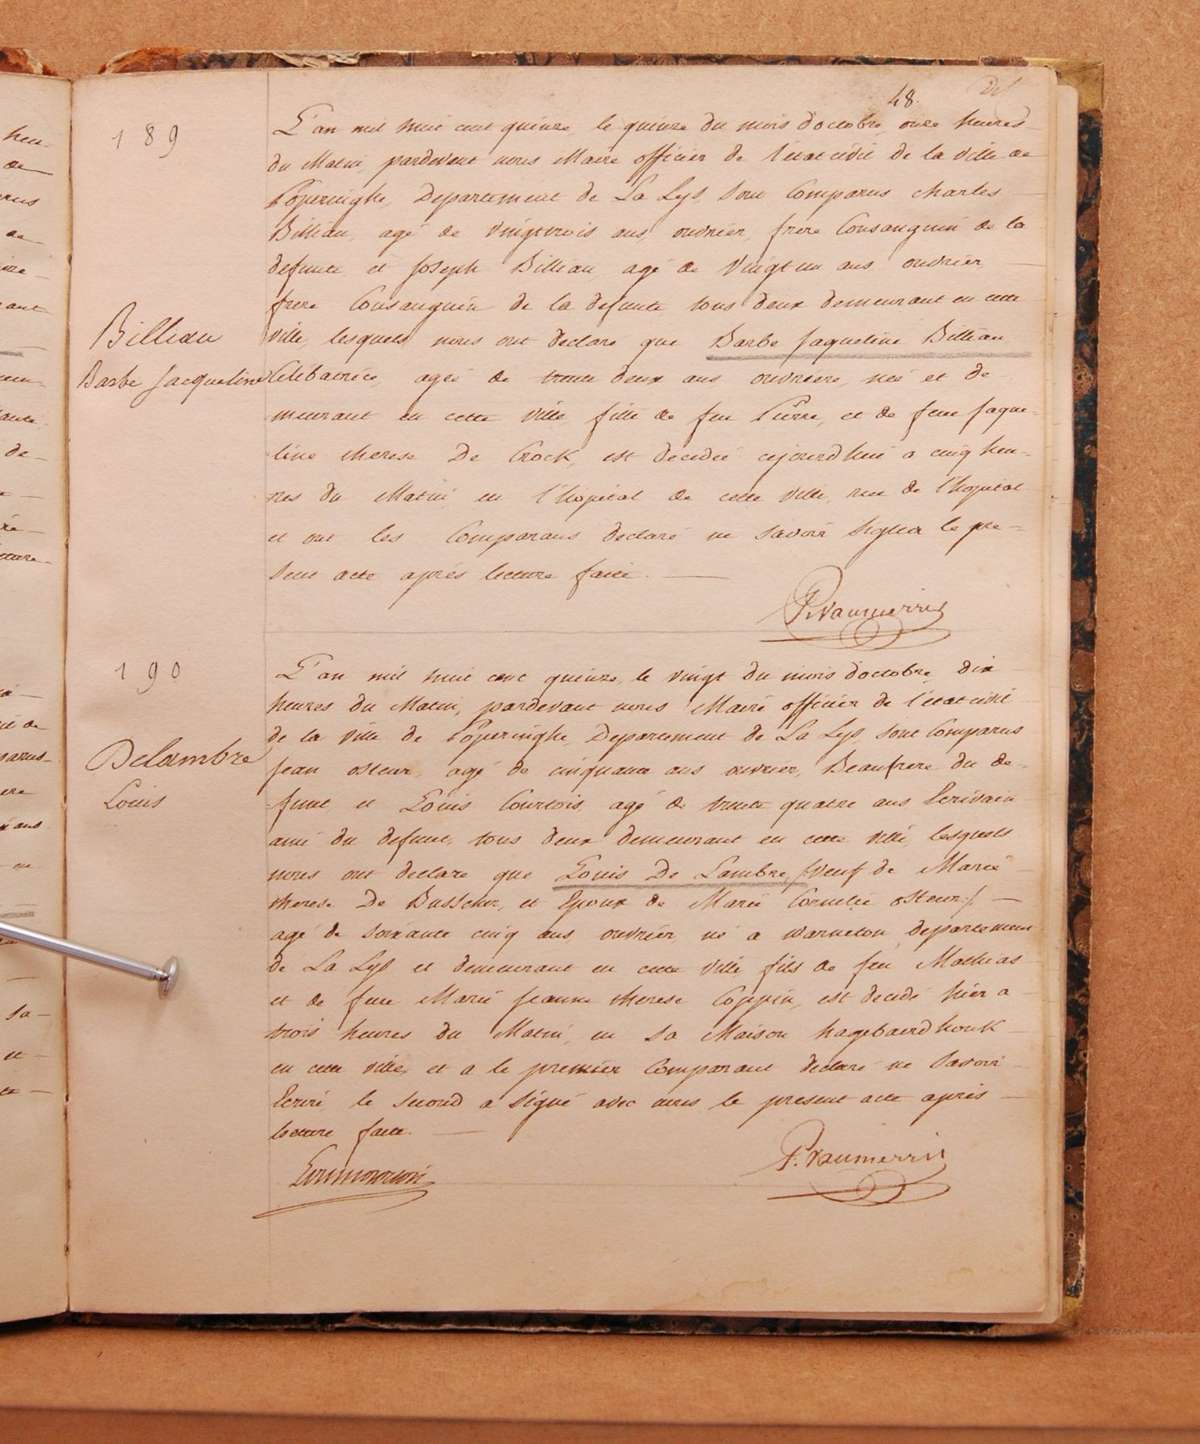 48.
189
L'an mil huit cent quinze, le quinze du mois d'octobre, onze heures
du Matin, pardevant nous Maire officier de l'etat civil de la ville de
Poperinghe, Departement de La Lys, sont Comparus Charles
Billiau, agé de vingt trois ans, ouvrier, frere Consanguin de la
defunte, et Joseph Billiau agé de Vingt un ans ouvrier
frere Consanguin de la defunte tous deux demeurant en cette
Billiau
ville, lesquels nous ont declaré que Barbe Jaqueline Billiau
Barbe Jacqueline
Celibatrice, agée de trente deux ans ouvriere, née et de-
meurant en cette ville, fille de feu Pierre, et de feue Jaque-
line therese De Crock, est decedée cejourd'hui a cinq heu-
res du Matin, en l'hôpital de cette ville, rue de l'hopital
et ont les Comparans declaré ne savoir signer le pre-
sent acte après lecture faite.
P. Vaumerris
190
L'an mil huit cent quinze, le vingt du mois d'octobre, dix
heures du Matin, pardevant nous Maire officier de l'état civil
de la ville de Poperinghe, Departement de La Lys, sont Comparus
Delambre
Jean osteur, agé de cinquante ans ouvrier, Beaufrere du de-
Louis
funt, et Louis Courtois, agé de trente quatre ans Ecrivain
ami du defunt, tous deux demeurant en cette ville, lesquels
nous ont declaré que Louis De Lambre, /Veuf de Marie
therese De Busscher, et Epoux de Marie Cornelie osteur/
agé de soixante cinq ans ouvrier, né a warneton, departement
de La Lys et demeurant en cette ville fils de feu Mathias
et de feue Marie Jeanne therese Coppin, est decedé hier a
trois heures du Matin, en sa Maison hagebaerdhouk
en cette ville, et a le premier Comparant declaré ne Savoir
Ecrire le second a signé avec nous le present acte après
lecture faite.
P. Vaumerris